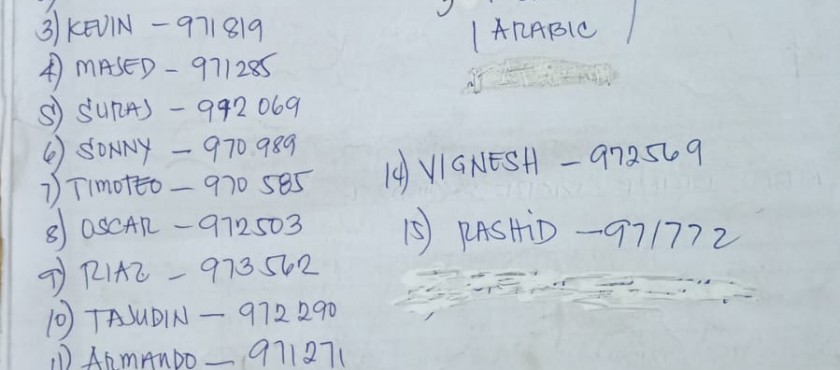 3) KEVIN - 971819
4) MASED - 971285
5) SURAJ - 992069
6) SONNY - 970989
7) TIMOTEO - 970585
8) OSCAR - 972503
9) RIAZ - 973562
10) TAJUDIN - 972290
11) ARMANDO - 971271
1 ARABIC
14) VIGNESH - 972569
15) RASHID - 971772